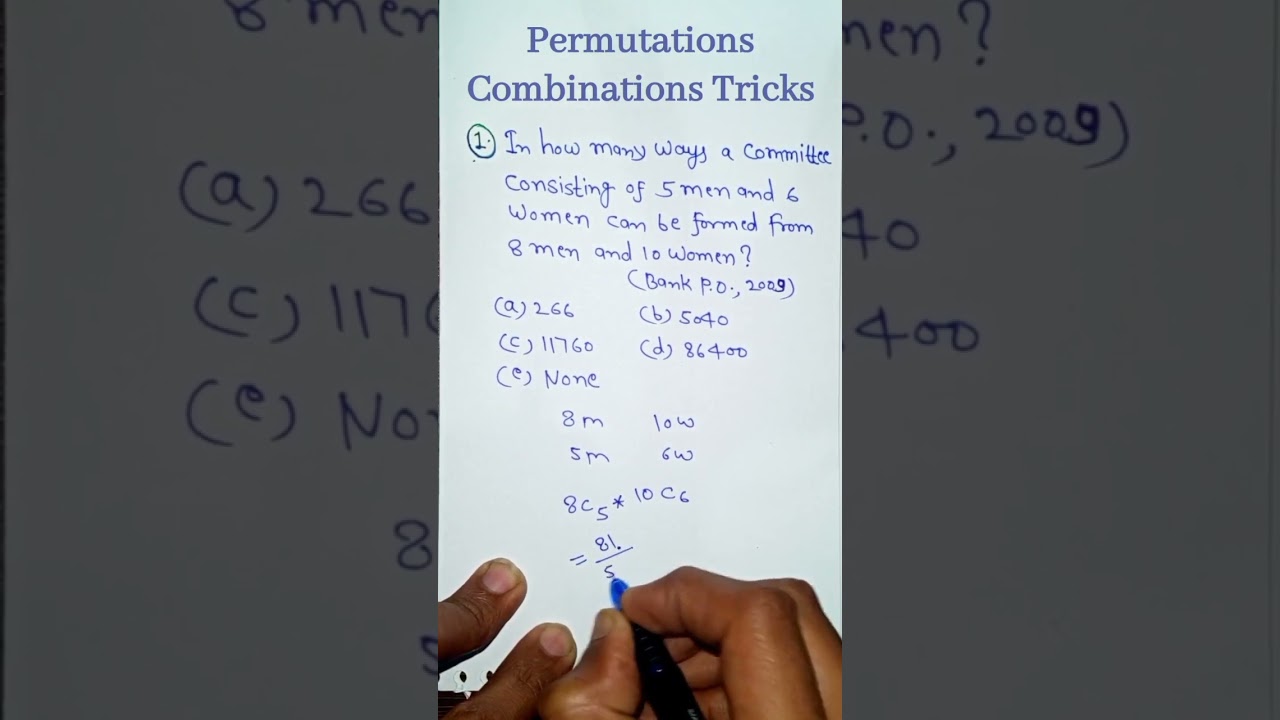 Permutations
Combinations Tricks
1. In how many ways a committee
consisting of 5 men and 6
women can be formed from
8 men and 10 women?
(Bank P.O., 2009)
(a) 266 (b) 5040
(c) 11760 (d) 86400
(e) None
8m 10w
5m 6w
8C5 * 10C6
= 8!
5